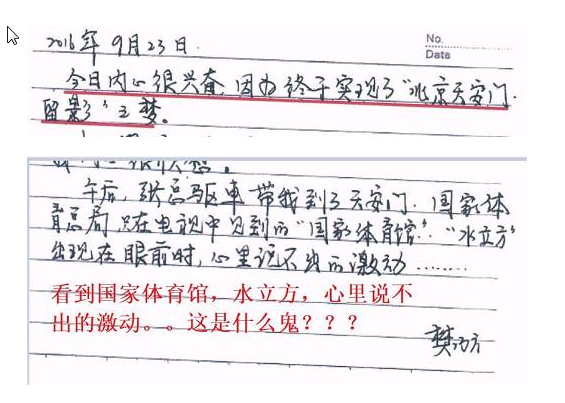 No.
Date
2016年9月23日.
今日内心很兴奋,因为终于实现了"北京天安门
留影"之梦。
午后,张总驱车带我到了天安门.国家体
育总局.只在电视中见到的"国家体育馆"."水立方"
出现在眼前时,心里说不出的激动........
看到国家体育馆，水立方，心里说不
出的激动。。这是什么鬼？？？